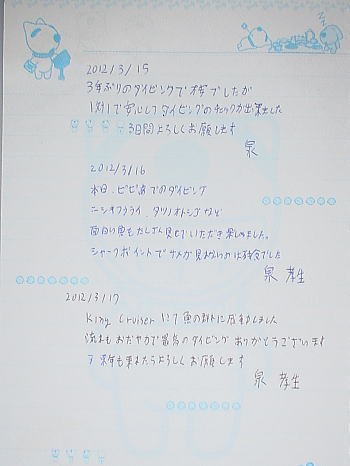 2012/3/15
3年ぶりのダイビングで
1対1で安心してダイビングのチェックが出来ました
3日間よろしくお願します
泉
2012/3/16
本日、ピピ島でのダイビング
ニシキフウライ、タツノオトシゴなど
面白い魚もたくさん見せていただき楽しめました。
シャークポイントでサメが見れないのは残念でした
泉 孝生
2012/3/17
King Cruiser にて魚の群れに感動しました
流れもおだやかで最高のダイビングありがとうございます
来年も来れたらよろしくお願します
泉 孝生